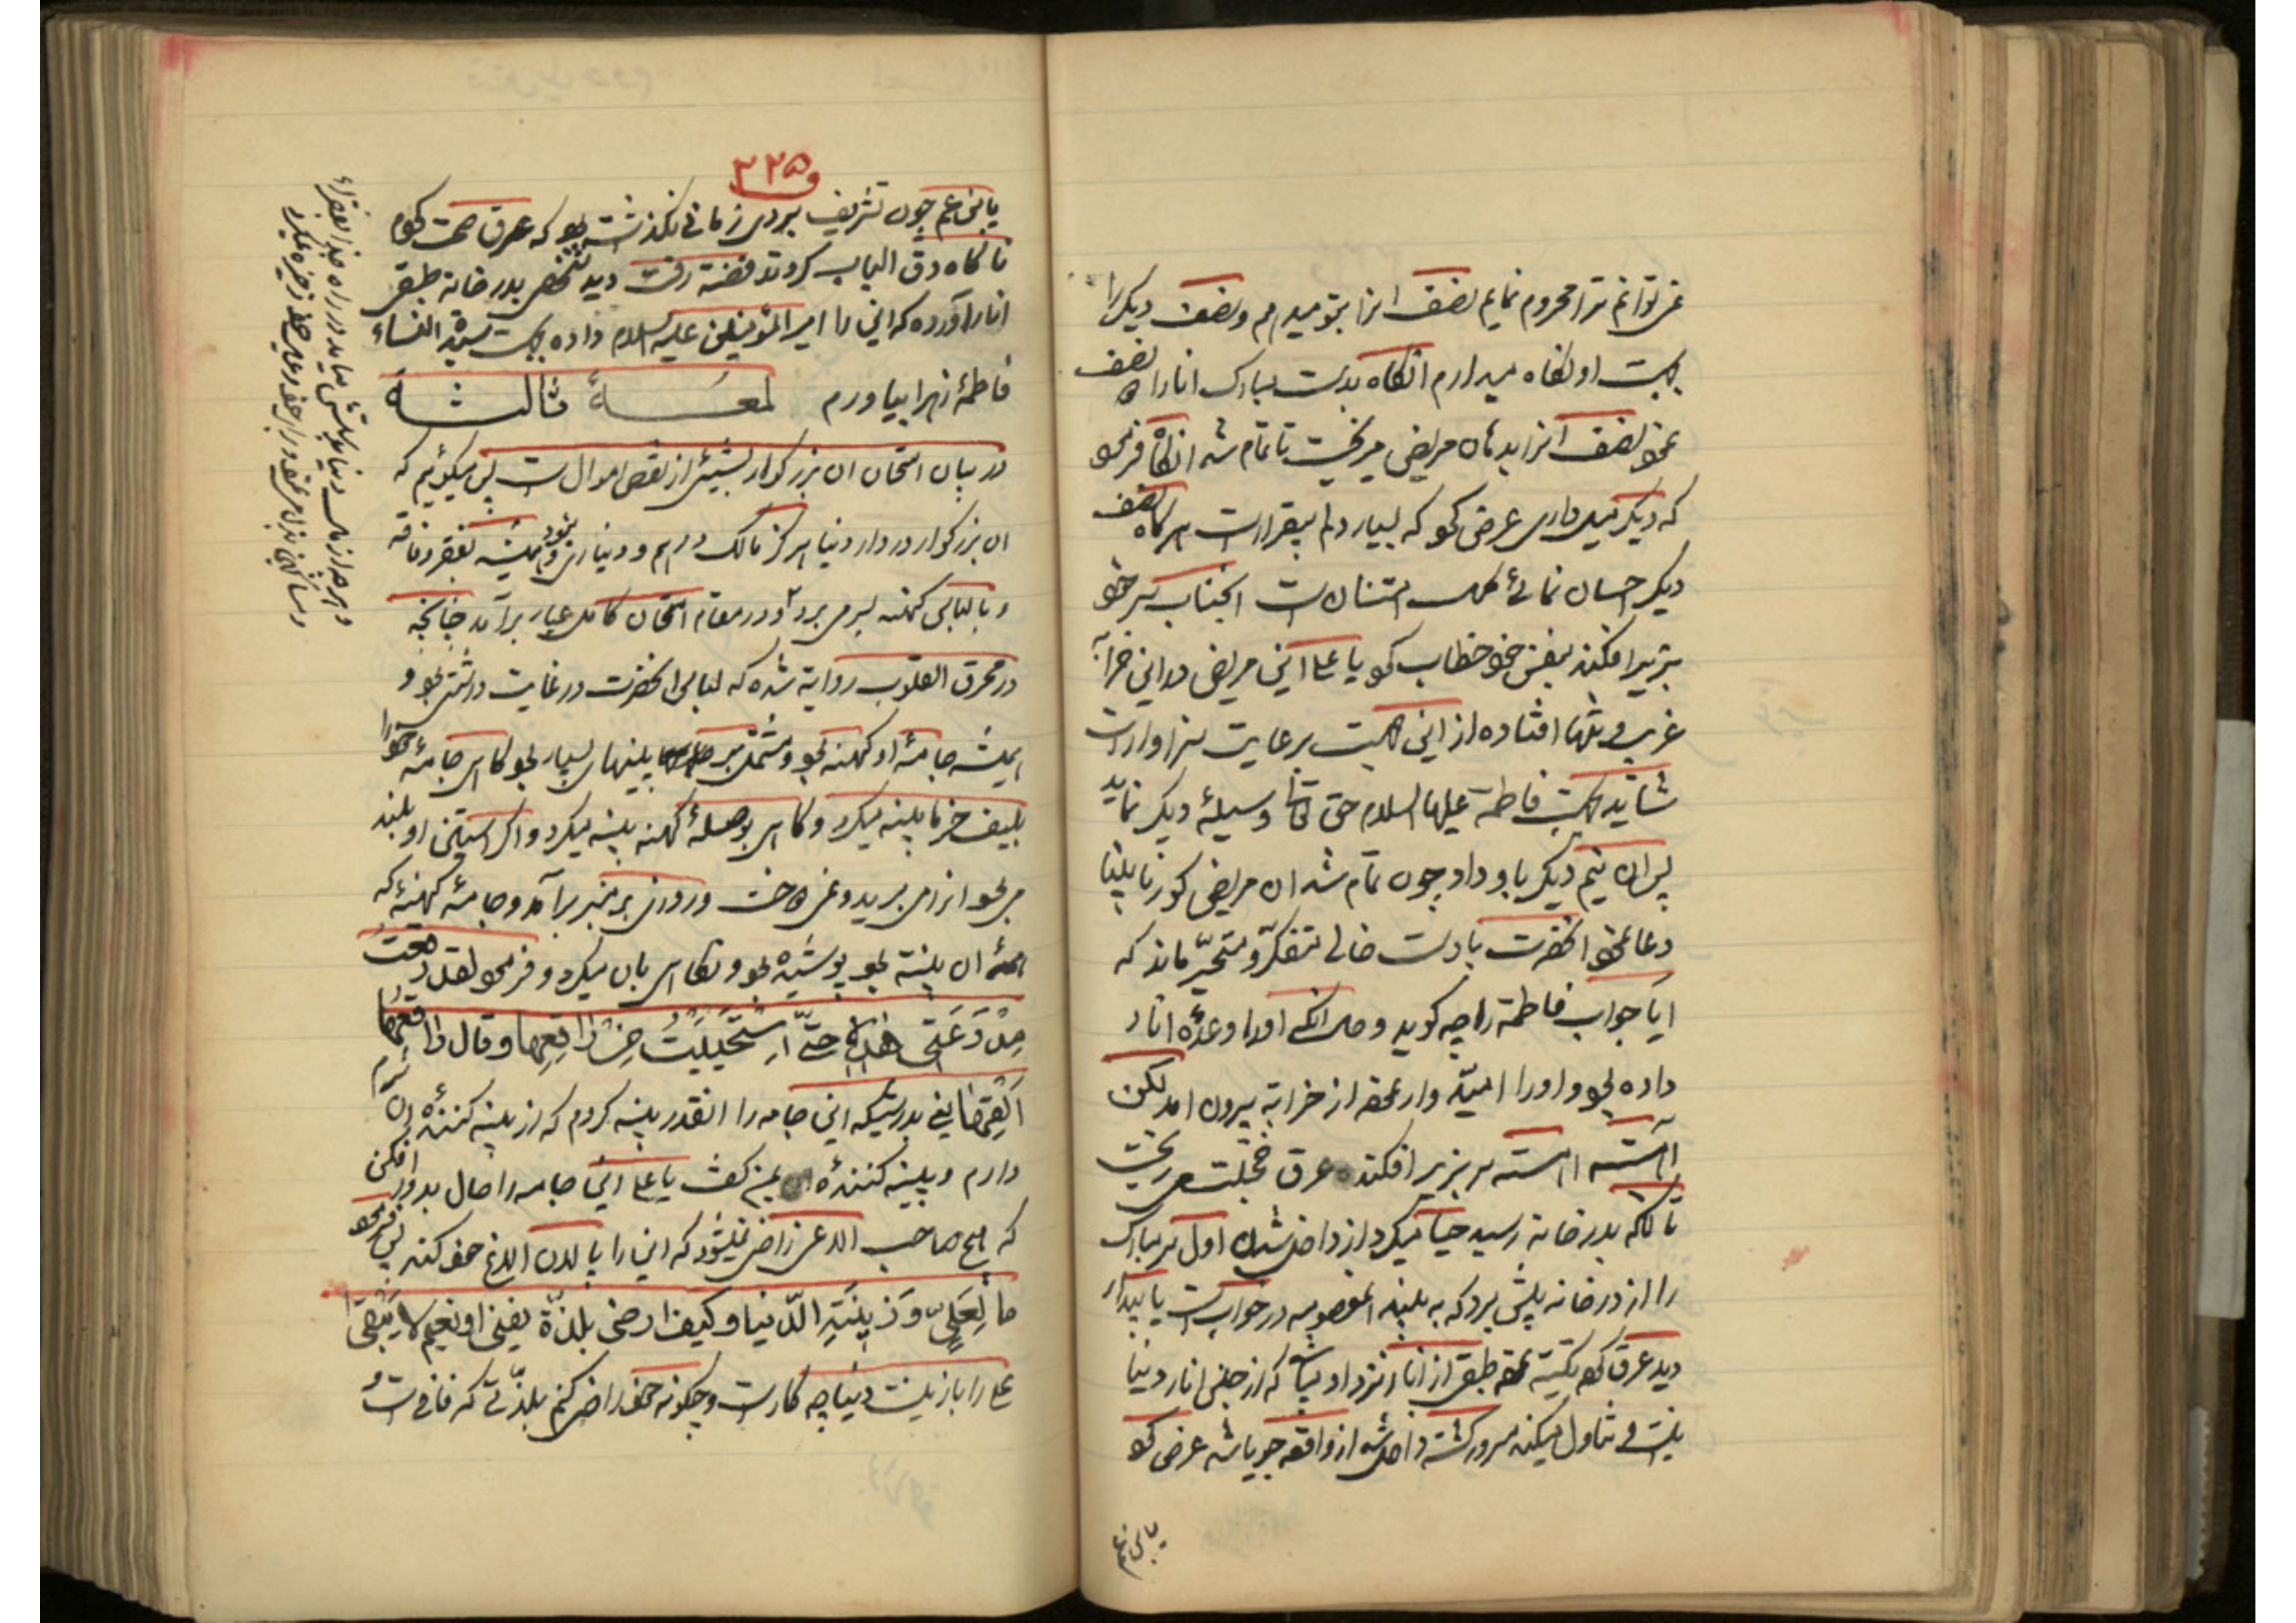 نمی توانم ترا محروم نمایم نصف انرا بتو میدهم و نصف دیگر را
بجهت او نگاه میدارم انگاه بدست مبارک انار را نصف
نمو نصف انرا بدهان مریض میریخت تا تمام شد انگاه فرمو
که دیگر میل داری عرض کو که بسیار دلم بیقرار است هرگاه نصف
دیگر احسان نمائی کمال امتنان است انجناب سر خو
بزیر افکند بنفس خو خطاب کو یا علی این مریض در این خرابه
غریب و تنها افتاده از این جهت برعایت سزاوار است
شاید بجهت فاطمه علیها السلام حق تعا وسیلۀ دیگر نماید
پس ان نیم دیگر باو داد چون تمام شد ان مریض کور نابینا
دعا نمو انحضرت با دست خالی متفکّر و متحیّر ماند که
ایا جواب فاطمه را چه گوید و حال انکه اورا وعدۀ انار
داده بو و اورا امیدوار نمو از خرابه بیرون امد لکن
اهسته اهسته سر بزیر افکند عرق خجلت می ریخت
تا انکه بدر خانه رسید حیا میکرد از داخل شدن اول سر مبارک
را از در خانه پیش برد که به بیند المعصومه در خواب است یا بیدار
دید عرق کو تکیه نمو طبقی از انار نزد او میباشد که از جنس انار دنیا
نیست و تناول میکند مسرور گشته داخل شد از واقعه جویا شد عرض کو
یابن عم
۳۲۵
یابن عم چون تشریف بردی زمانی نگذشت بو که عرق صحت کردم
ناگاه دق الباب کردند فضه رفت دید شخصی بدر خانه طبقی
انار آورده که این را امیر المؤمنین علیه السلام داده بجهت سیدة النساء
فاطمۀ زهرا بیاورم لمعــــۀ ثالثــة
در بیان امتحان ان بزرگوار بشیئ از نقص اموال است پس میگوئیم که
ان بزرگوار در دار دنیا هرگز مالک درهم و دیناری نبود و همیشه بفقر و فاقه
و با لباس کهنه بسر می برد و در مقام امتحان کامل عیار برآمد چنانچه
در محرق القلوب روایة شده که لباس انحضرت در غایت درشتی بو و
همیشه جامۀ او کهنه بو و مشتمل بر پینهای بسیار بو گاهی جامۀ خو را
بلیف خرما پینه میکرد و گاهی بوصلۀ کهنه پینه میکرد و اگر استین او بلند
می بو انرا می بریدو نمی دوخت و روزی بر منبر برآمد و جامۀ کهنۀ که
همۀ ان پینه بو پوشیده بو و نگاهی بان میکرد و فرمو لقد رقعتُ
مِدْرَعَتی هذه حتّی استحییت من راقعها و قال راقعها
اَلقِها عنی بدرستیکه این جامه را انقدر پینه کردم که از پینه کنندۀ ان شرم
دارم و پینه کنندۀ ان بمن گفت یا علی این جامه را حال بدور افکن
که هیچ صاحب الاغی راضی نمیشود که این را پالان الاغ خو کند پس فرمو
ما لِعَلِیٍّ وَ زینَتِ الدّنیا و کیف ارضی بلذّة یفنی او نعیم لا یبقی
علی را با زینت دنیا چه کار است و چگونه خو راضی کنم بلذّتی که فانی است